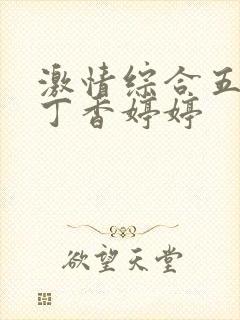 激情综合五
丁香婷婷
欲望天堂